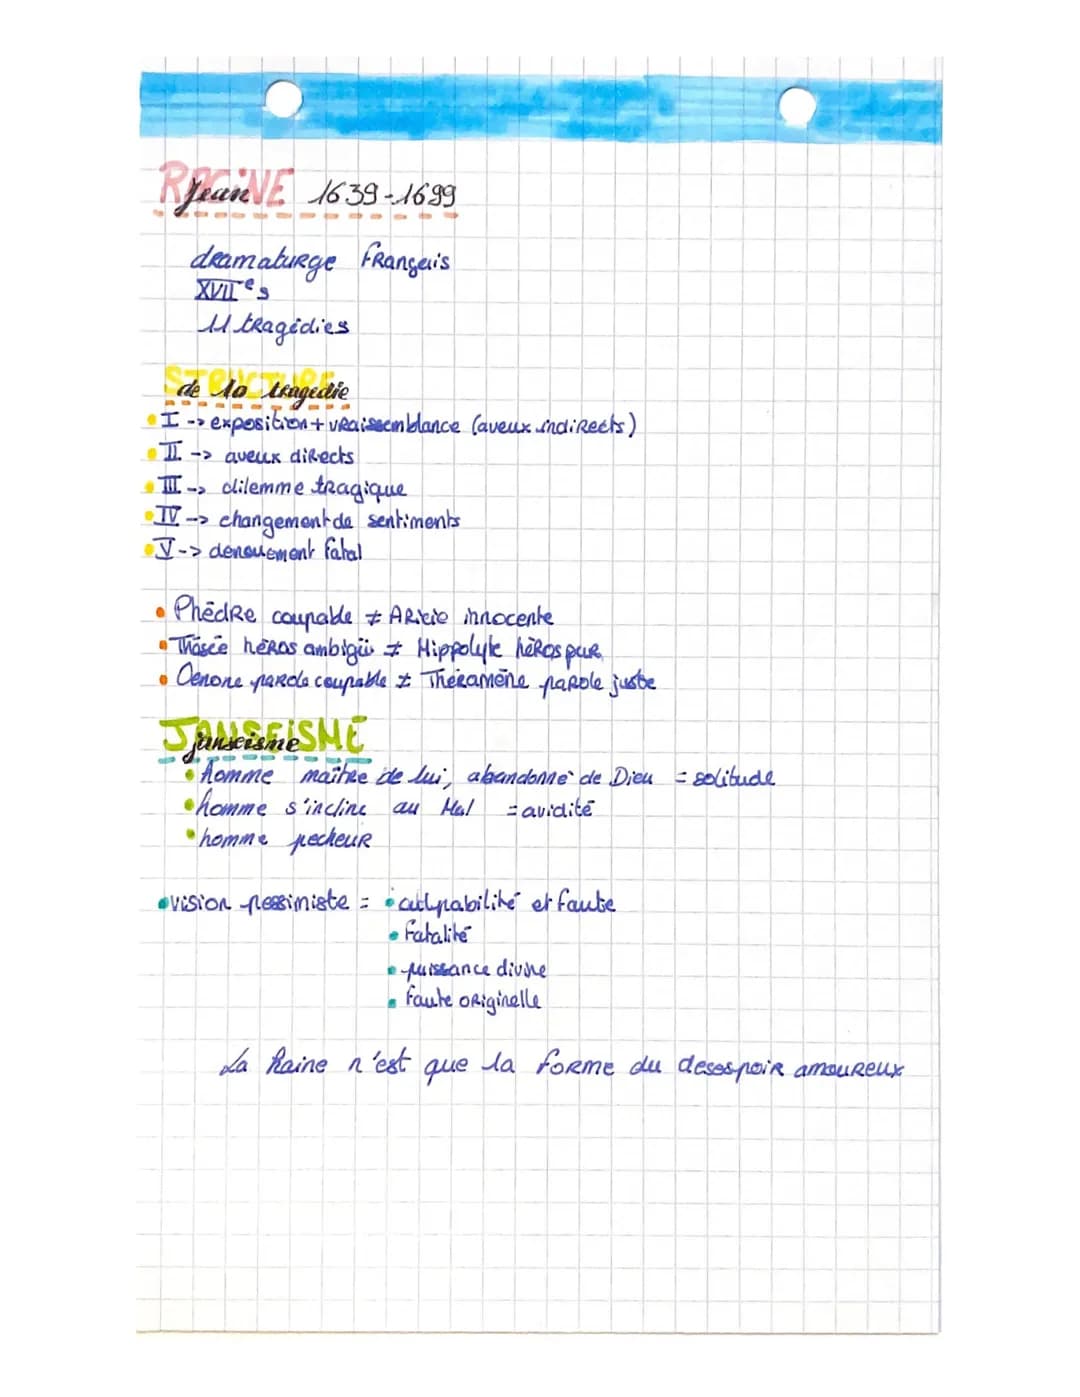 RACINE Jean 1639-1699
dramaturge français
XVIIe s
11 tragédies
STRUCTURE
de la tragédie
I -> exposition + vraissemblance (aveux indirects)
II -> aveux directs
III -> dilemme tragique
IV -> changement de sentiments
V -> denouement fatal
Phèdre coupable ≠ Aricie innocente
Thésée héros ambigüi ≠ Hippolyte héros pur
Oenone parole coupable ≠ Théramène parole juste
JANSEÏSME
janseisme
homme maître de lui, abandonné de Dieu = solitude
homme s'incline au Mal = avidité
homme pecheur
vision pessimiste = culpabilité et faute
Fatalité
puissance divine
Faute originelle
La haine n'est que la forme du desespoir amoureux